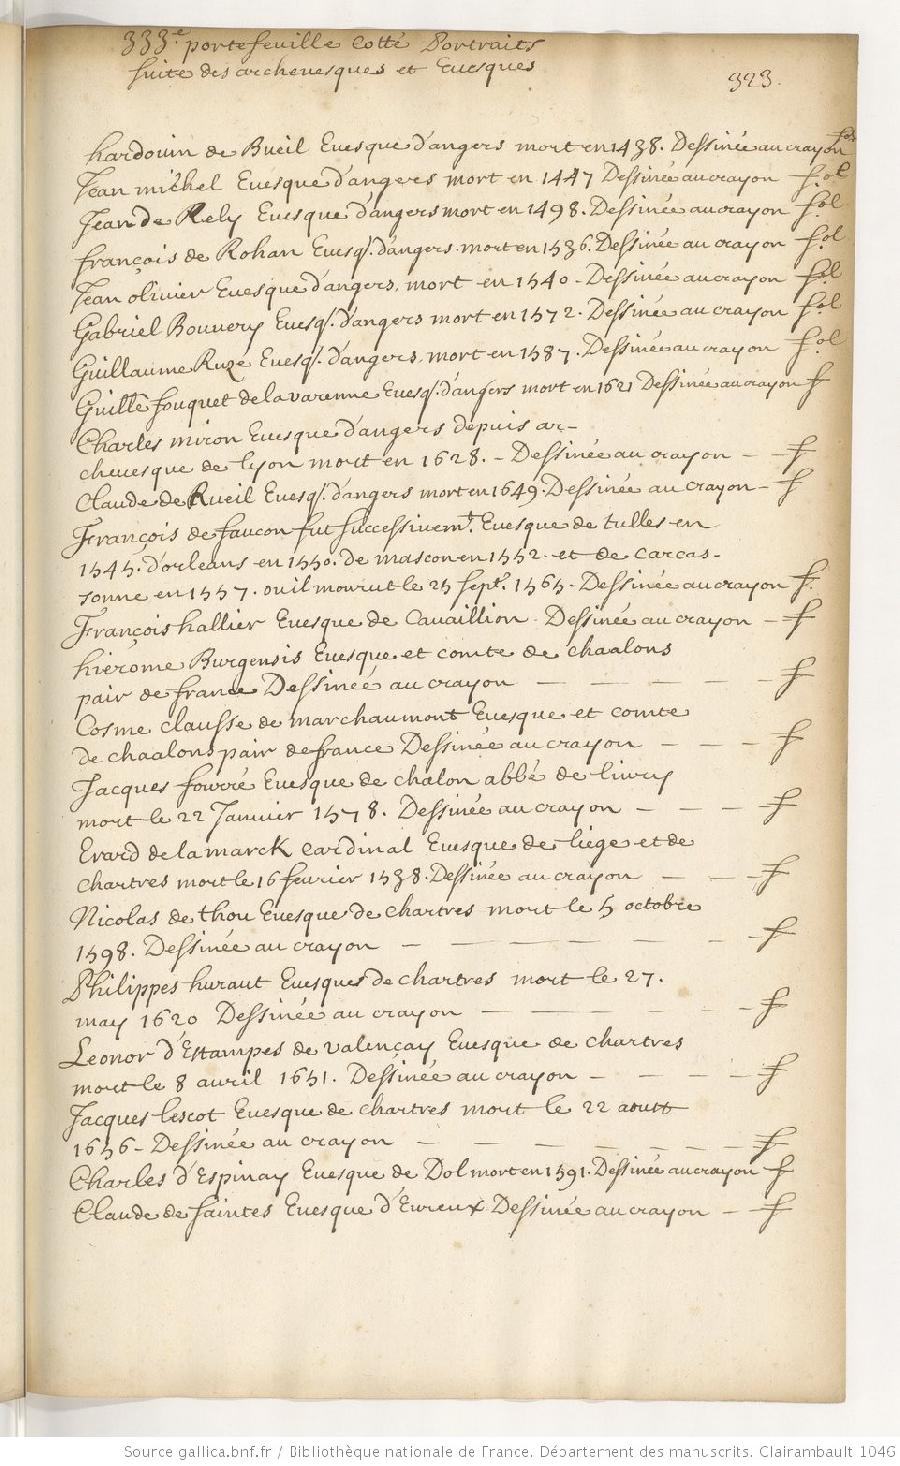 333.e portefeuille Cotté Portraits
suite des archeuesques et Euesques
323.
hardouin de Bueil Euesque d'angers mort en 1438. Dessinée au crayon fol
Jean michel Euesque d'angers mort en 1447 Dessinée au crayon fol
Jean de Rely Euesque d'angers mort en 1498. Dessinée au crayon fol
françois de Rohan Euesq. d'angers mort en 1536. Dessinée au crayon fol
Jean olivier Euesque d'angers, mort en 1540 - Dessinée au crayon fol
Gabriel Bouuery Euesq. d'angers mort en 1572. Dessinée au crayon fol
Guillaume Ruzé Euesq. d'angers, mort en 1587. Dessinée au crayon fol
Guille fouquet de la varenne Euesq. d'angers mort en 1621 Dessinée au crayon f
Charles miron Euesque d'angers depuis ar-
cheuesque de lyon mort en 1628. - Dessinée au crayon - f
Claude de Rueil Euesq. d'angers mort en 1649. Dessinée au crayon - f
François de faucon fut successivemt. Euesque de tulles en
1545. d'orleans en 1550. de mascon en 1552. et de Carcas-
sonne en 1557. ou il mourut le 25 sept. 1565. Dessinée au crayon f.
François hallier Euesque de Cauaillion. Dessinée au crayon - f
hierome Burgensis Euesque et comte de chaalons
pair de france Dessinée au crayon - - - - - f
Cosme clausse de marchaumont Euesque et comte
de chaalons pair de france Dessinée au crayon - - - f
Jacques fourré Euesque de chalon abbé de liury
mort le 22 Januier 1578. Dessinée au crayon - - - f
Erard de la marck Cardinal Euesque de liege et de
Chartres mort le 16 feurier 1538. Dessinée au crayon - - f
Nicolas de thou Euesque de chartres mort le 5 octobre
1598. Dessinée au crayon - - - - - - f
Philippes huraut Euesque de chartres mort le 27.
may 1620 Dessinée au crayon - - - - - f
Leonor d'Estampes de valençay Euesque de chartres
mort le 8 auril 1651. Dessinée au crayon - - - f
Jacques lescot Euesque de chartres mort le 22 aoust
1656 - Dessinée au crayon - - - - - - f
Charles d'Espinay Euesque de Dol mort en 1591. Dessinée au crayon f
Claude de saintes Euesque d'Eureux Dessinée au crayon - f
Source gallica.bnf.fr / Bibliothèque nationale de France. Département des manuscrits. Clairambault 1046